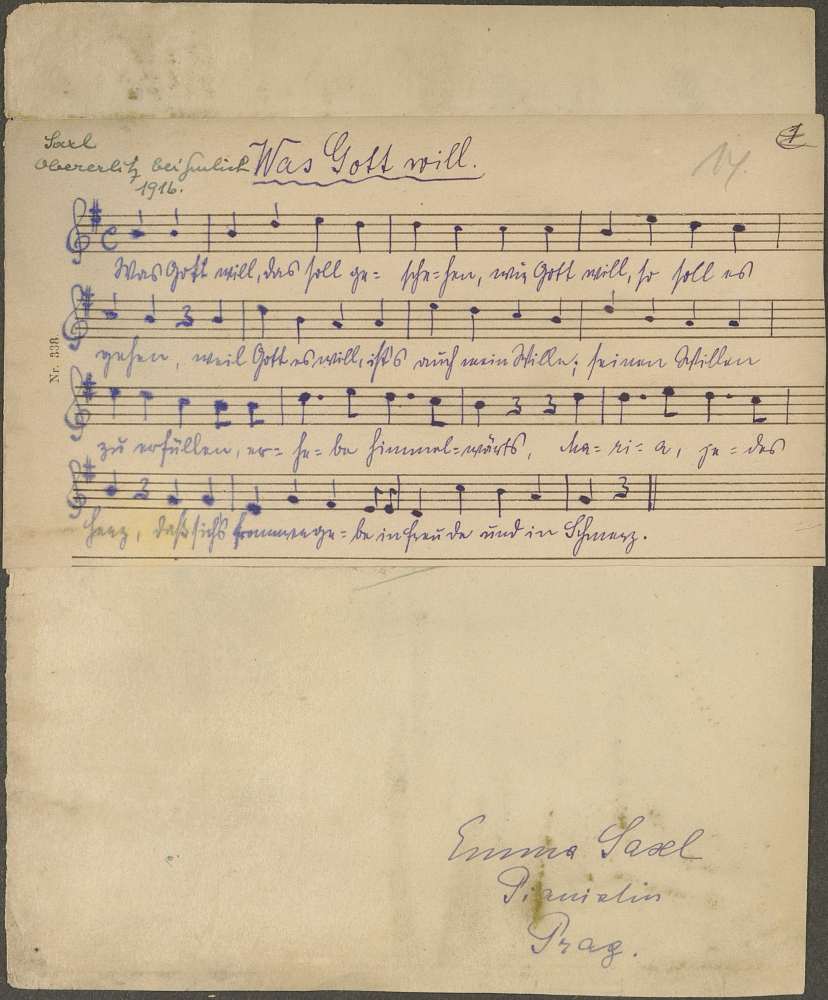 Saxl
Obererlitz bei
1916.
Was Gott will.
14.
1
Nr. 338
Was Gott will, das soll ge- sche-hen, wie Gott will, so soll es
gehen, weil Gott es will, ist's auch mein Wille; seinen Willen
zu erfüllen, er- he- be himmel-wärts, Ma- ri- a, je- des
Herz, daß sich's fromm erge- be in Freude und in Schmerz.
Emma Saxl
Pianistin
Prag.